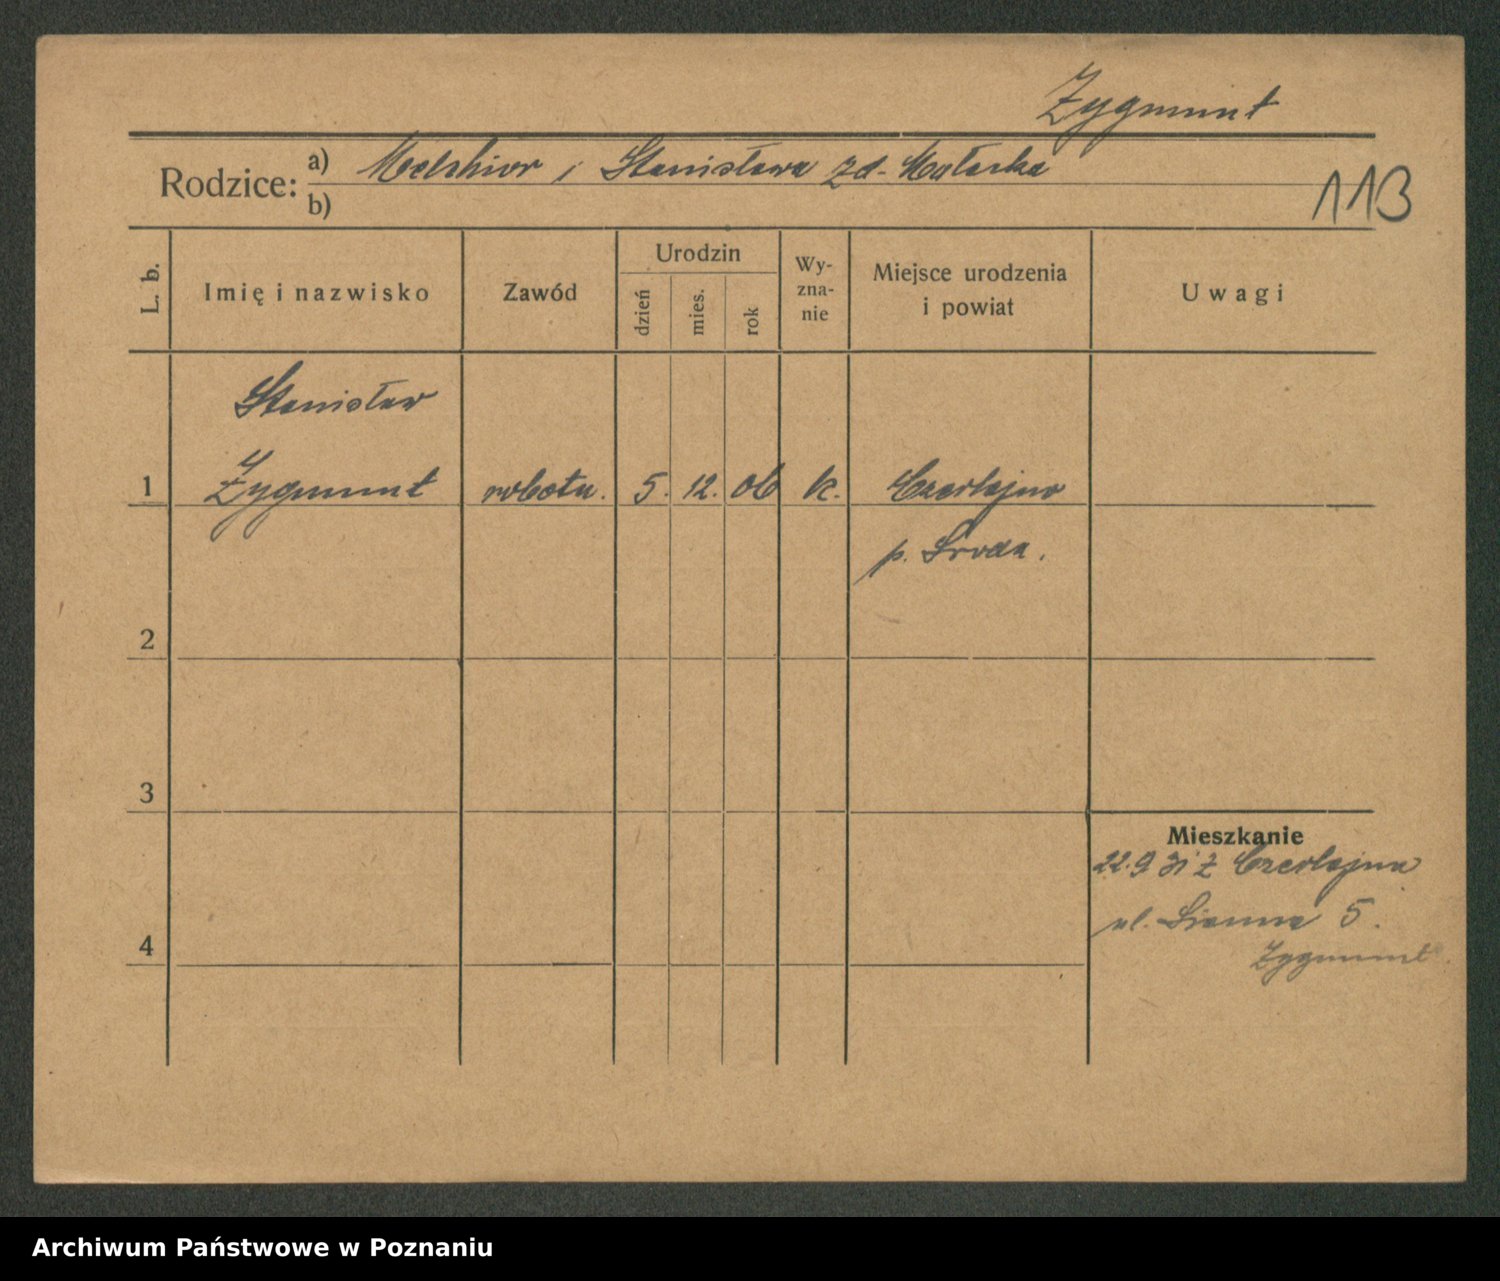 Zygmunt
Rodzice: a) Melchior i Stanisława zd.
b)
113
L. b.
Imię i nazwisko
Zawód
Urodzin
dzień
mies.
rok
Wy-
zna-
nie
Miejsce urodzenia
i powiat
Uwagi
Stanisław
1 Zygmunt robotn. 5. 12. 06 k. Czerlejno
p. Środa.
2
3
Mieszkanie
22.9 31 z Czerlejna
ul. Sienna 5.
4
Zygmunt.
Archiwum Państwowe w Poznaniu